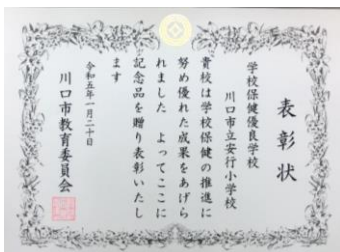 表彰状
学校保健優良学校
川口市立安行小学校
貴校は学校保健の推進に
努め優れた成果をあげら
れました よってここに
記念品を贈り表彰いたし
ます
令和五年一月二十日
川口市教育委員会